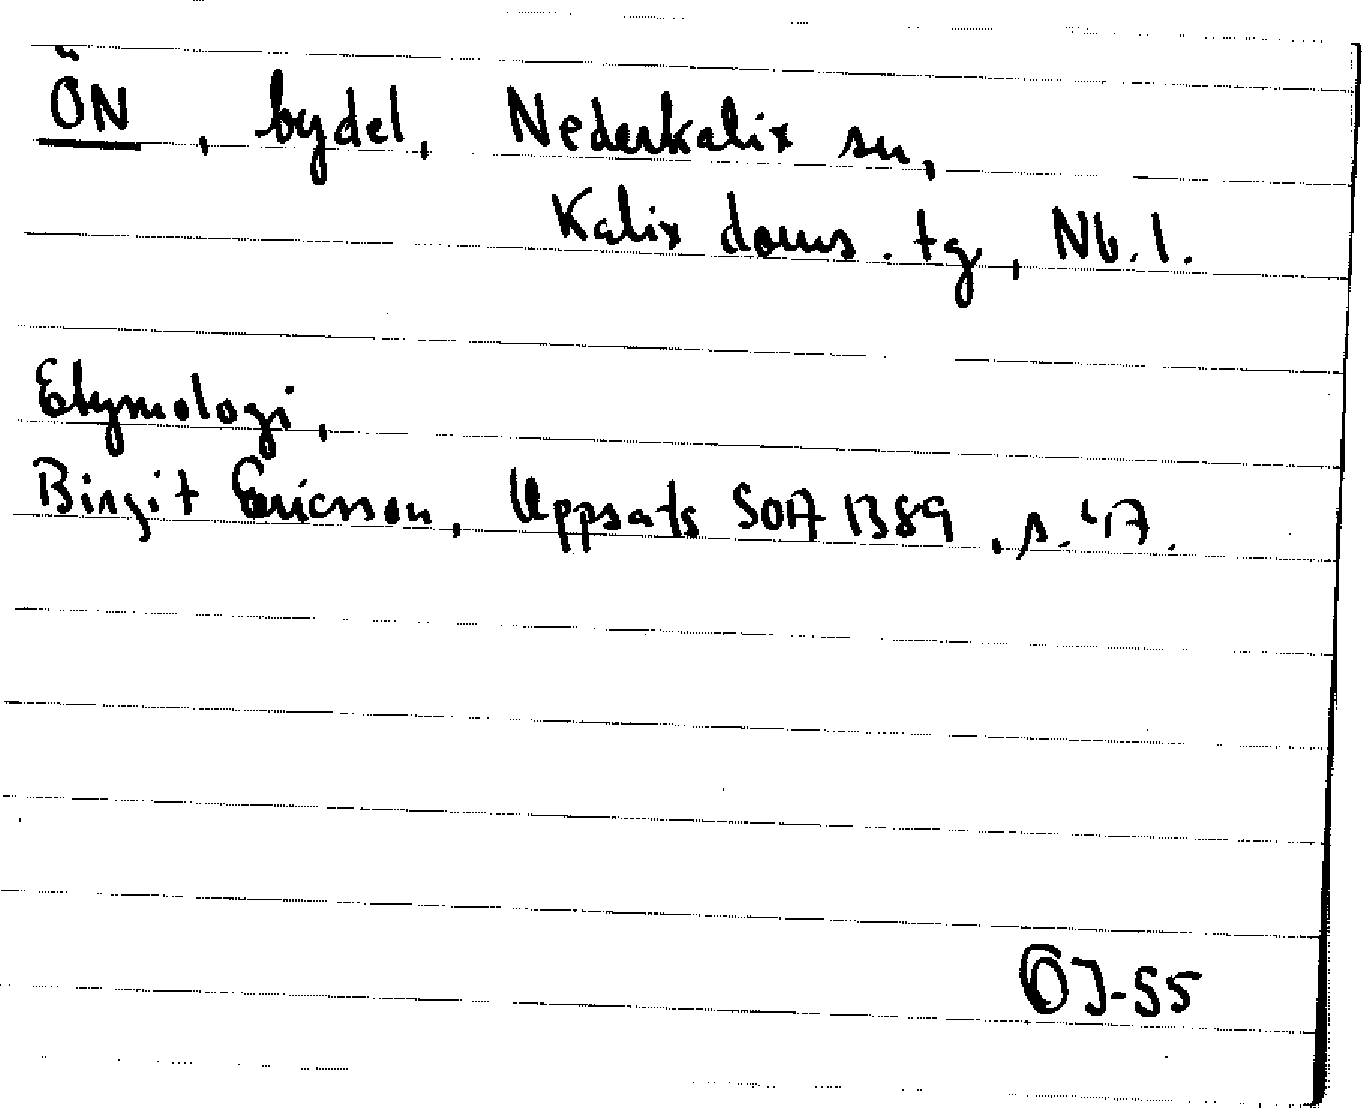 ÖN, bydel, Nederkalix sn,
Kalix doms. tg, Nb. l.
Etymologi,
Birgit Ericsson, Uppsats SOA 1389, s. 47.
ÖJ-85